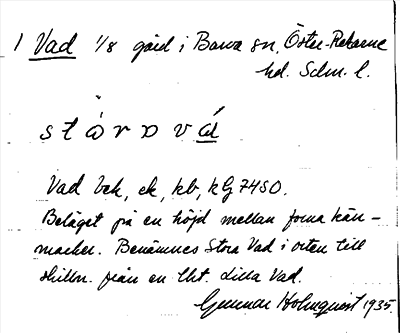 1 Vad 1/8 gård i Barva sn, Öster-Rekarne
hd. Sdm. l.
stòrɒvá
Vad bek, ek, kb, kG 7450.
Beläget på en höjd mellan forna kärr-
marker. Benämnes Stora Vad i orten till
skilln. från en lht. Lilla Vad.
Gunnar Holmqvist 1935.